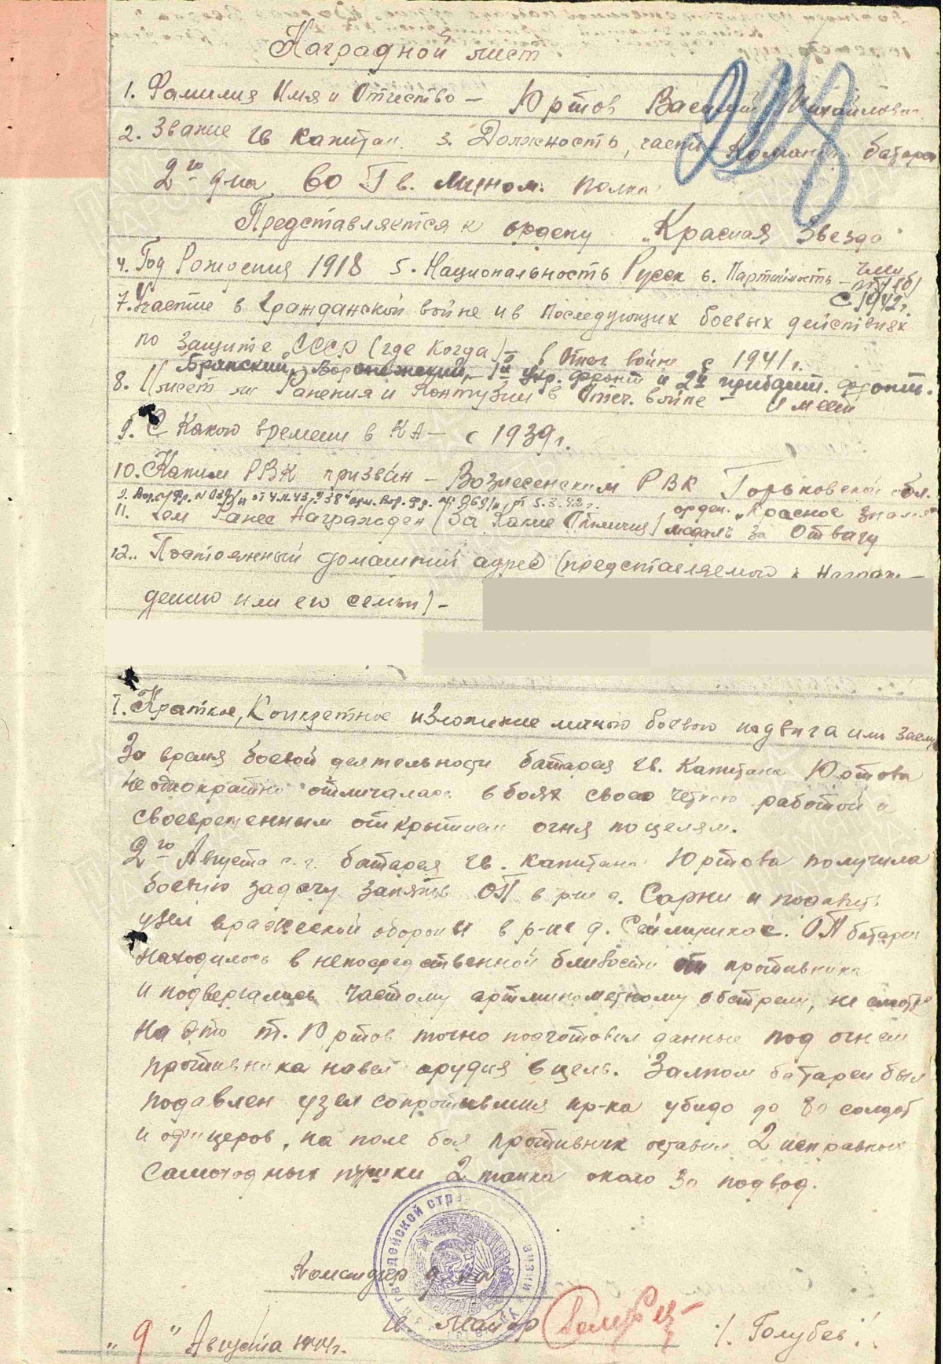 Наградной лист
1. Фамилия Имя и Отчество – Юртов Василий Михайлович
2. Звание гв капитан 3. Должность, часть Командир батареи
2го д-на 60 Гв. Мином. полка
Представляется к ордену "Красная Звезда"
4. Год Рождения 1918 5. Национальность Русск 6. Партийность член
ВКП(б)
с 1942г.
7. Участие в Гражданской войне и в последующих боевых действиях
по защите СССР (где когда) – в Отеч войне с 1941г.
Брянский, Воронежский, 1й Укр. фронт и 2й прибалт. фронт.
8. Имеет ли Ранения и Контузии в Отеч. войне – Имеет
9. С Какого времени в КА – с 1939г.
10. Каким РВК призван – Вознесенским РВК Горьковской обл.
орден "Красное знамя"
11. Чем Ранее Награжден (За Какие Отличия) медаль За Отвагу
12. Постоянный домашний адрес (представляемого к Награж-
дению или его семьи) –
1. Краткое, Конкретное изложение личного боевого подвига или заслуг
За время боевой деятельности батарея гв. Капитана Юртова
неоднократно отличалась в боях своей четкой работой и
своевременным открытием огня по целям.
2го Августа с.г. батарея гв. капитана Юртова получила
боевую задачу занять ОП в р-не д. Сарни и подавить
узел вражеской обороны в р-не д. ОП батареи
находилось в непосредственной близости от противника
и подвергалась частому артминометному обстрелу, не смотря
на это т. Юртов точно подготовил данные под огнем
противника навел орудия в цель. Залпом батареи был
подавлен узел сопротивления пр-ка убито до 80 солдат
и офицеров, на поле боя противник оставил 2 исправных
самоходных пушки 2 танка около 30 подвод.
Командир д-на
гв Майор /Голубев/
"9" Августа 1944г.
218